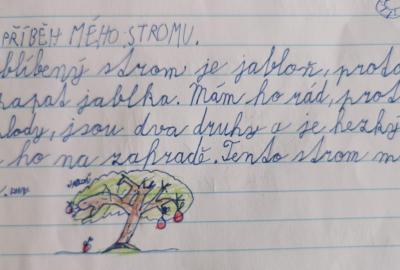 PŘÍBĚH MÉHO STROMU.
blíbený strom je jabloň, proto
rapat jablka. Mám ho rád, prot
lody, jsou dva druhy a je hezký
ho na zahradě. Tento strom m